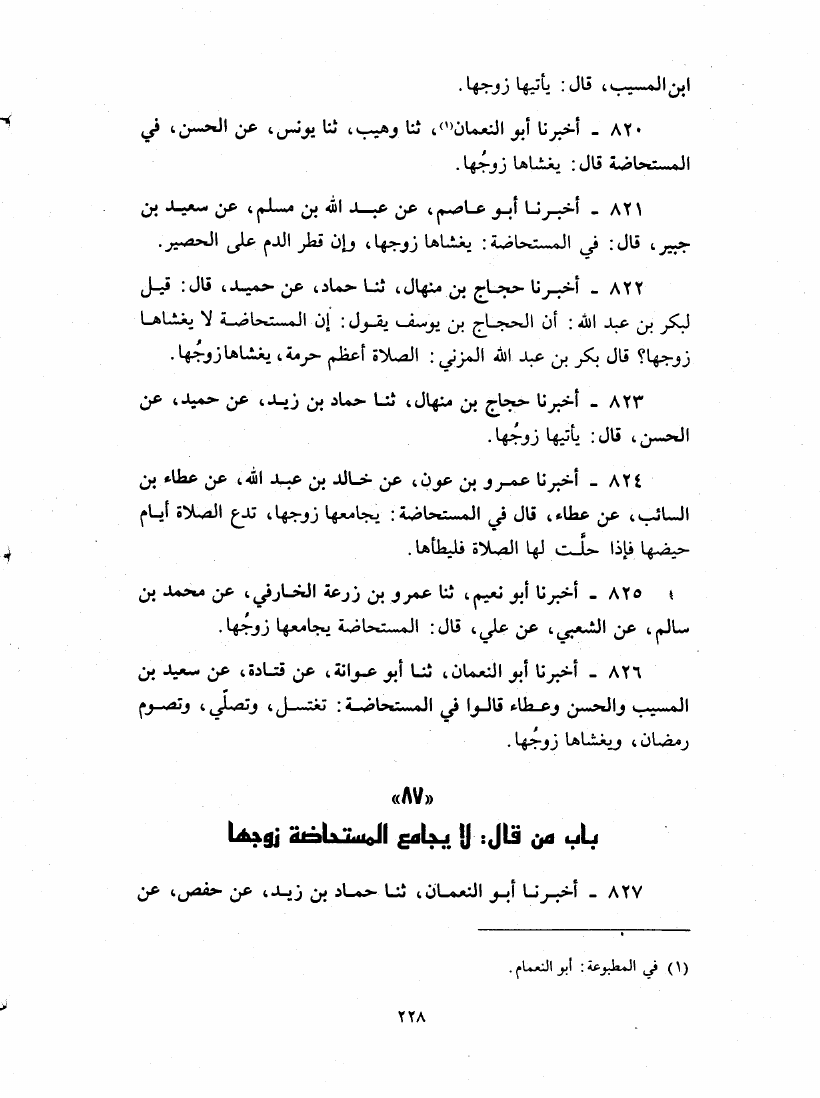 ابن المسيب، قال: يأتيها زوجها.
٨٢٠ - أخبرنا أبو النعمان(١)، ثنا وهيب، ثنا يونس، عن الحسن، في
المستحاضة قال: يغشاها زوجُها.
٨٢١ - أخبرنا أبو عاصم، عن عبد الله بن مسلم، عن سعيد بن
جبير، قال: في المستحاضة: يغشاها زوجها، وإن قطر الدم على الحصير.
٨٢٢ - أخبرنا حجاج بن منهال، ثنا حماد، عن حميد، قال: قيل
لبكر بن عبد الله: أن الحجاج بن يوسف يقول: إن المستحاضة لا يغشاها
زوجها؟ قال بكر بن عبد الله المزني: الصلاة أعظم حرمة، يغشاها زوجُها.
٨٢٣ - أخبرنا حجاج بن منهال، ثنا حماد بن زيد، عن حميد، عن
الحسن، قال: يأتيها زوجُها.
٨٢٤ - أخبرنا عمرو بن عون، عن خالد بن عبد الله، عن عطاء بن
السائب، عن عطاء، قال في المستحاضة: يجامعها زوجها، تدع الصلاة أيام
حيضها فإذا حلَّت لها الصلاة فليطأها.
٨٢٥ - أخبرنا أبو نعيم، ثنا عمرو بن زرعة الخارفي، عن محمد بن
سالم، عن الشعبي، عن علي، قال: المستحاضة يجامعها زوجُها.
٨٢٦ - أخبرنا أبو النعمان، ثنا أبو عوانة، عن قتادة، عن سعيد بن
المسيب والحسن وعطاء قالوا في المستحاضة: تغتسل، وتصلّي، وتصوم
رمضان، ويغشاها زوجُها.
«٨٧»
باب من قال: لا يجامع المستحاضة زوجها
٨٢٧ - أخبرنا أبو النعمان، ثنا حماد بن زيد، عن حفص، عن
(١) في المطبوعة: أبو النعمام.
٢٢٨